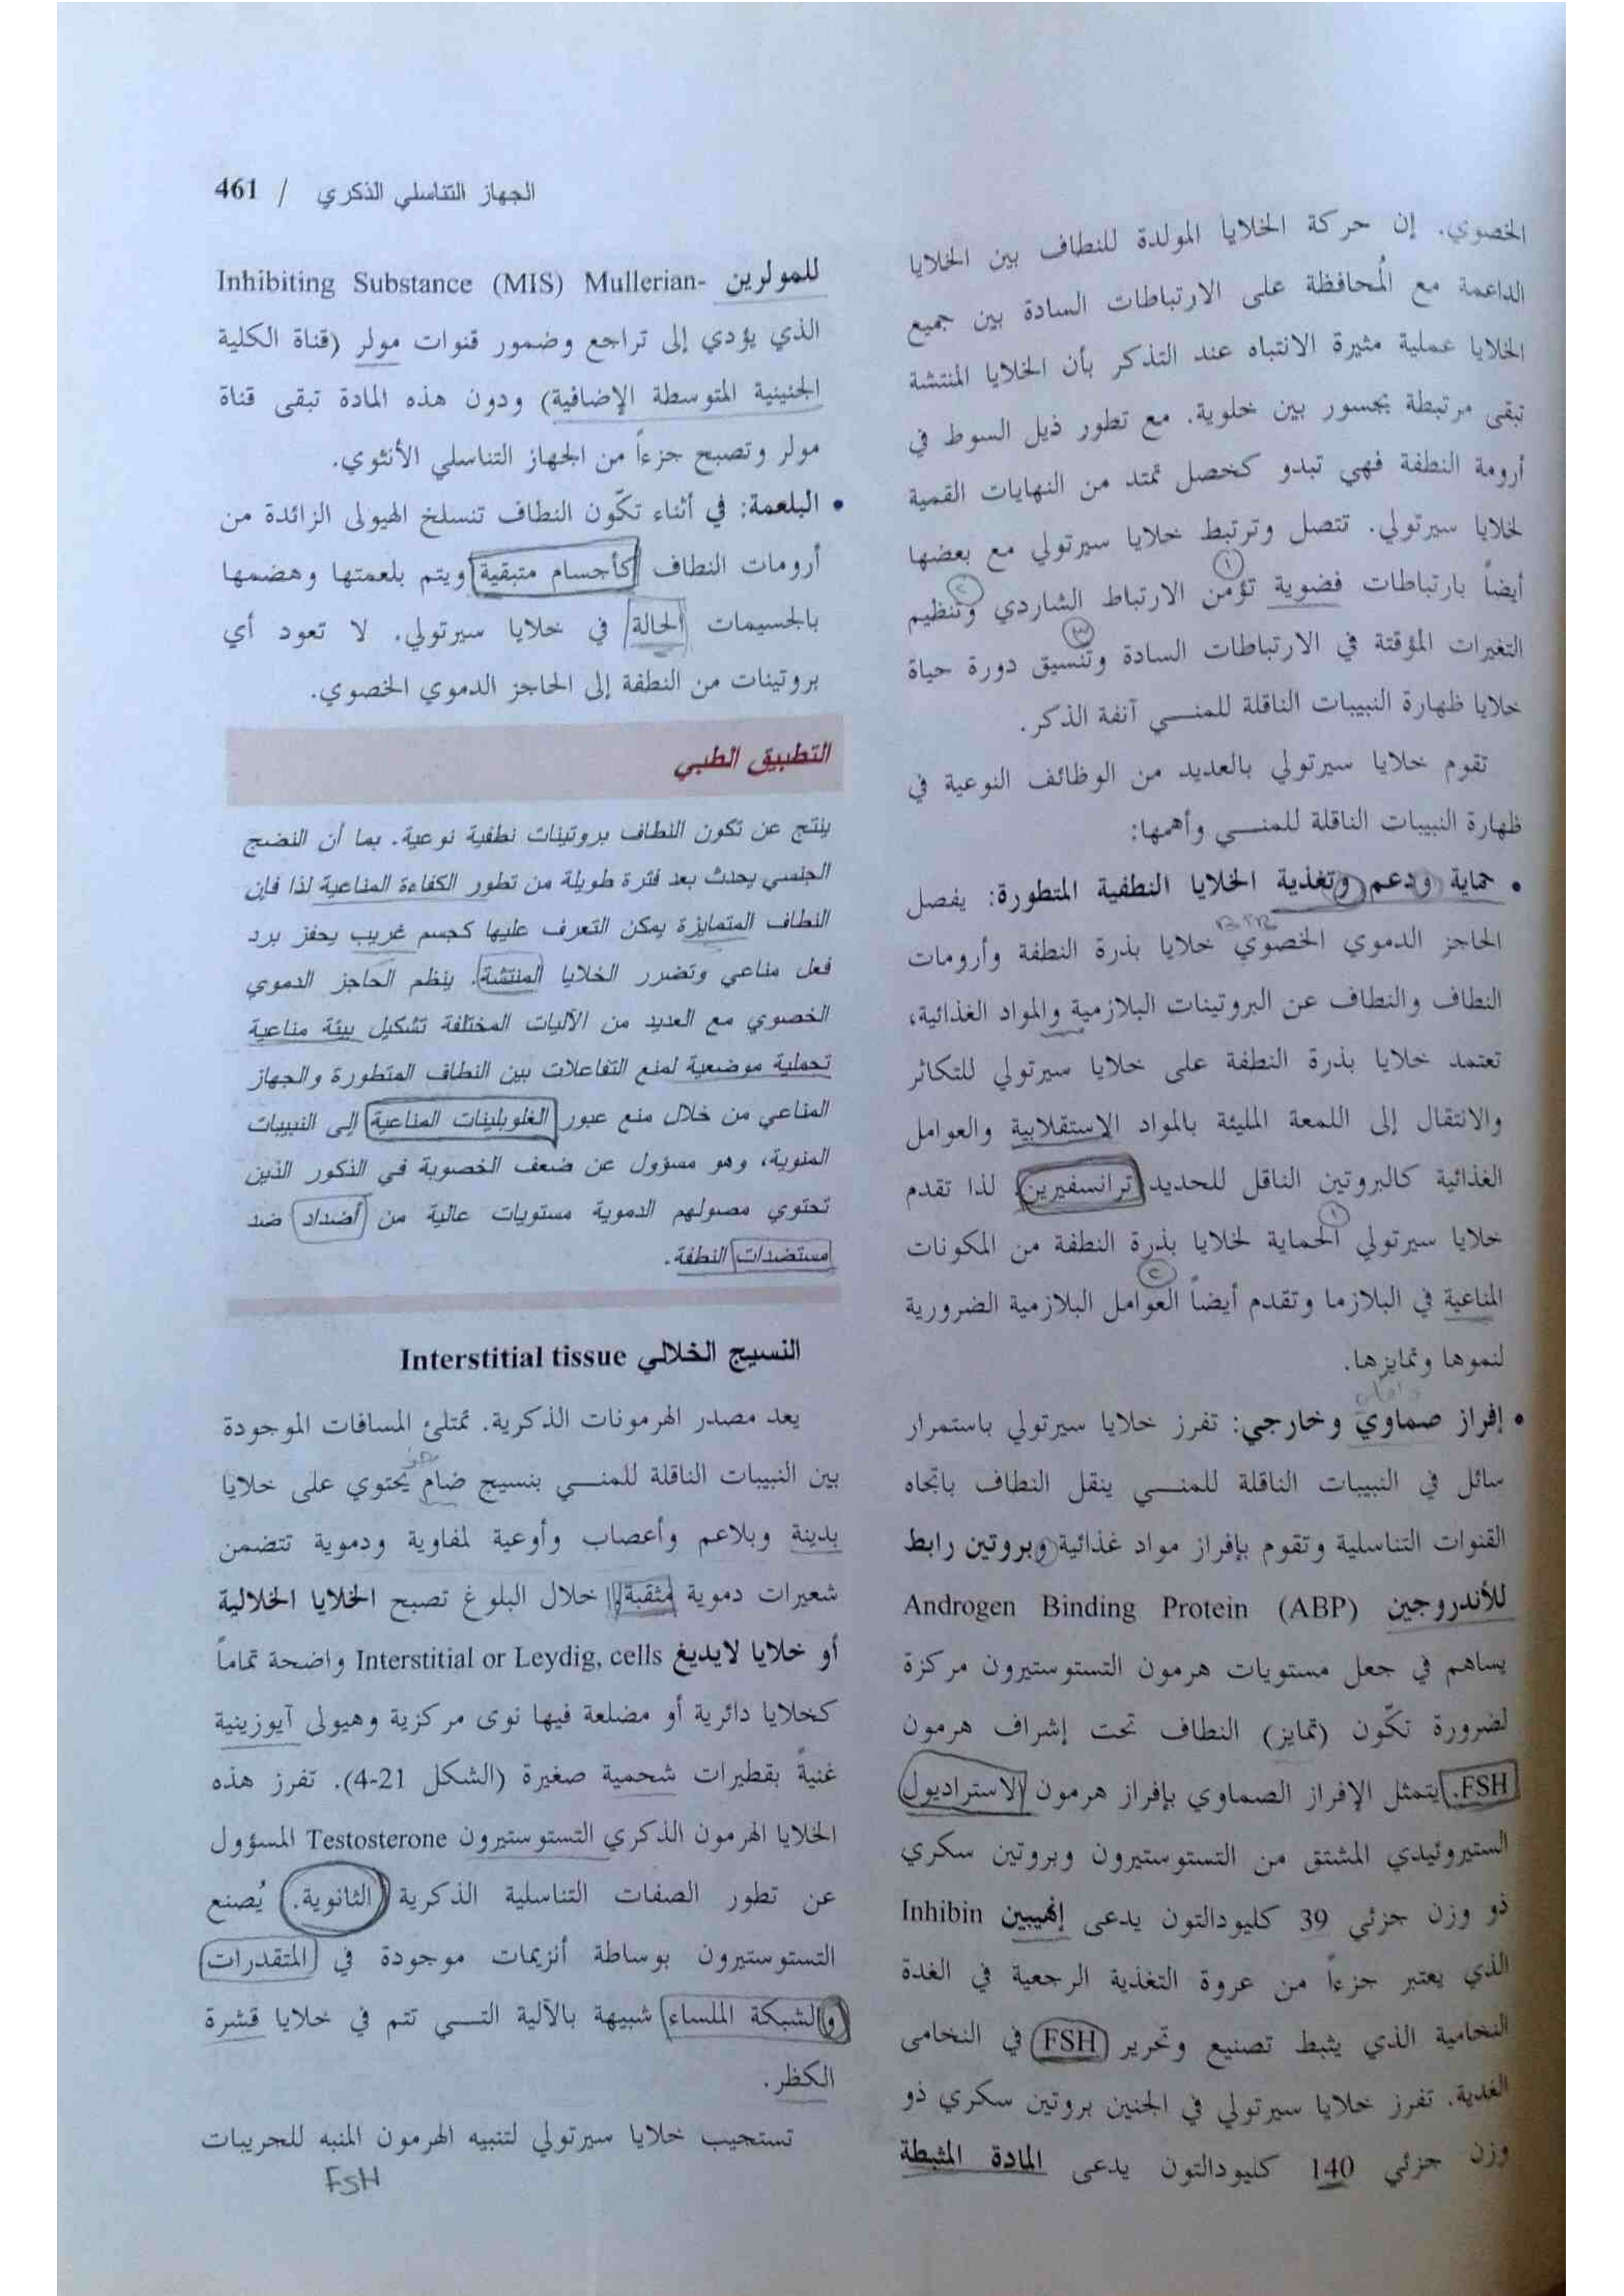 الجهاز التناسلي الذكري / 461
الخصوي. إن حركة الخلايا المولدة للنطاف بين الخلايا
الداعمة مع المُحافظة على الارتباطات السادة بين جميع
الخلايا عملية مثيرة الانتباه عند التذكر بأن الخلايا المنتشة
تبقى مرتبطة بجسور بين خلوية. مع تطور ذيل السوط في
أرومة النطفة فهي تبدو كخصل تمتد من النهايات القمية
لخلايا سيرتولي. تتصل وترتبط خلايا سيرتولي مع بعضها
١
أيضاً بارتباطات فضوية تؤمن الارتباط الشاردي وتنظيم
٢
٣
التغيرات المؤقتة في الارتباطات السادة وتنسيق دورة حياة
خلايا ظهارة النبيبات الناقلة للمنـي آنفة الذكر.
تقوم خلايا سيرتولي بالعديد من الوظائف النوعية في
ظهارة النبيبات الناقلة للمنـي وأهمها:
• حماية ودعم وتغذية الخلايا النطفية المتطورة: يفصل
الحاجز الدموي الخصوي خلايا بذرة النطفة وأرومات
النطاف والنطاف عن البروتينات البلازمية والمواد الغذائية،
تعتمد خلايا بذرة النطفة على خلايا سيرتولي للتكاثر
والانتقال إلى اللمعة المليئة بالمواد الاستقلابية والعوامل
الغذائية كالبروتين الناقل للحديد ترانسفيرين، لذا تقدم
١
خلايا سيرتولي الحماية لخلايا بذرة النطفة من المكونات
٢
المناعية في البلازما وتقدم أيضاً العوامل البلازمية الضرورية
لنموها وتمايزها.
• إفراز صماوي وخارجي: تفرز خلايا سيرتولي باستمرار
سائل في النبيبات الناقلة للمنـي ينقل النطاف باتجاه
القنوات التناسلية وتقوم بإفراز مواد غذائية وبروتين رابط
للأندروجين Androgen Binding Protein (ABP)
يساهم في جعل مستويات هرمون التستوستيرون مركزة
لضرورة تكّون (تمايز) النطاف تحت إشراف هرمون
FSH. يتمثل الإفراز الصماوي بإفراز هرمون الاستراديول
الستيروئيدي المشتق من التستوستيرون وبروتين سكري
ذو وزن جزئي 39 كليودالتون يدعى إنهيبين Inhibin
الذي يعتبر جزءاً من عروة التغذية الرجعية في الغدة
النخامية الذي يثبط تصنيع وتحرير FSH في النخامى
الغدية. تفرز خلايا سيرتولي في الجنين بروتين سكري ذو
وزن جزئي 140 كليودالتون يدعى المادة المثبطة
للمولرين Inhibiting Substance (MIS) Mullerian-
الذي يؤدي إلى تراجع وضمور قنوات مولر (قناة الكلية
الجنينية المتوسطة الإضافية) ودون هذه المادة تبقى قناة
مولر وتصبح جزءاً من الجهاز التناسلي الأنثوي.
• البلعمة: في أثناء تكّون النطاف تنسلخ الهيولى الزائدة من
أرومات النطاف كأجسام متبقية ويتم بلعمتها وهضمها
بالجسيمات الحالة في خلايا سيرتولي. لا تعود أي
بروتينات من النطفة إلى الحاجز الدموي الخصوي.
التطبيق الطبي
ينتج عن تكون النطاف بروتينات نطفية نوعية. بما أن النضج
الجنسي يحدث بعد فترة طويلة من تطور الكفاءة المناعية لذا فإن
النطاف المتمايزة يمكن التعرف عليها كجسم غريب يحفز برد
فعل مناعي وتضرر الخلايا المنتشة. ينظم الحاجز الدموي
الخصوي مع العديد من الآليات المختلفة تشكيل بيئة مناعية
تحملية موضعية لمنع التفاعلات بين النطاف المتطورة والجهاز
المناعي من خلال منع عبور الغلوبلينات المناعية إلى النبيبات
المنوية، وهو مسؤول عن ضعف الخصوبة في الذكور الذين
تحتوي مصولهم الدموية مستويات عالية من أضداد ضد
مستضدات النطفة.
النسيج الخلالي Interstitial tissue
يعد مصدر الهرمونات الذكرية. تمتلئ المسافات الموجودة
بين النبيبات الناقلة للمنـي بنسيج ضام يحتوي على خلايا
بدينة وبلاعم وأعصاب وأوعية لمفاوية ودموية تتضمن
شعيرات دموية مثقبة. خلال البلوغ تصبح الخلايا الخلالية
أو خلايا لايديغ Interstitial or Leydig, cells واضحة تماماً
كخلايا دائرية أو مضلعة فيها نوى مركزية وهيولى آيوزينية
غنيةً بقطيرات شحمية صغيرة (الشكل 21-4). تفرز هذه
الخلايا الهرمون الذكري التستوستيرون Testosterone المسؤول
عن تطور الصفات التناسلية الذكرية الثانوية. يُصنع
التستوستيرون بوساطة أنزيمات موجودة في المتقدرات
والشبكة الملساء شبيهة بالآلية التـي تتم في خلايا قشرة
الكظر.
تستجيب خلايا سيرتولي لتنبيه الهرمون المنبه للجريبات
FSH